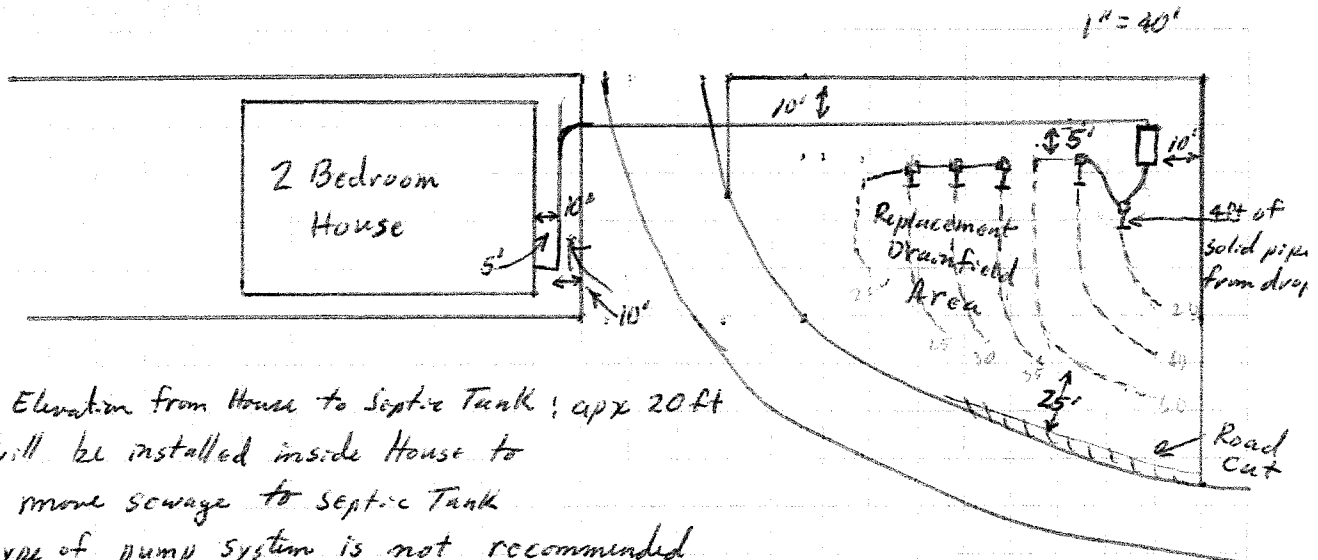 1" = 40'
10'
5'
10'
2 Bedroom
House
10'
5'
10'
Replacement
Drainfield
Area
4ft of
solid pipe
from drop
25
30
40
60
25'
Road
Cut
Elevation from House to Septic Tank ; apx 20 ft
will be installed inside House to
move sewage to septic Tank
type of pump system is not recommended